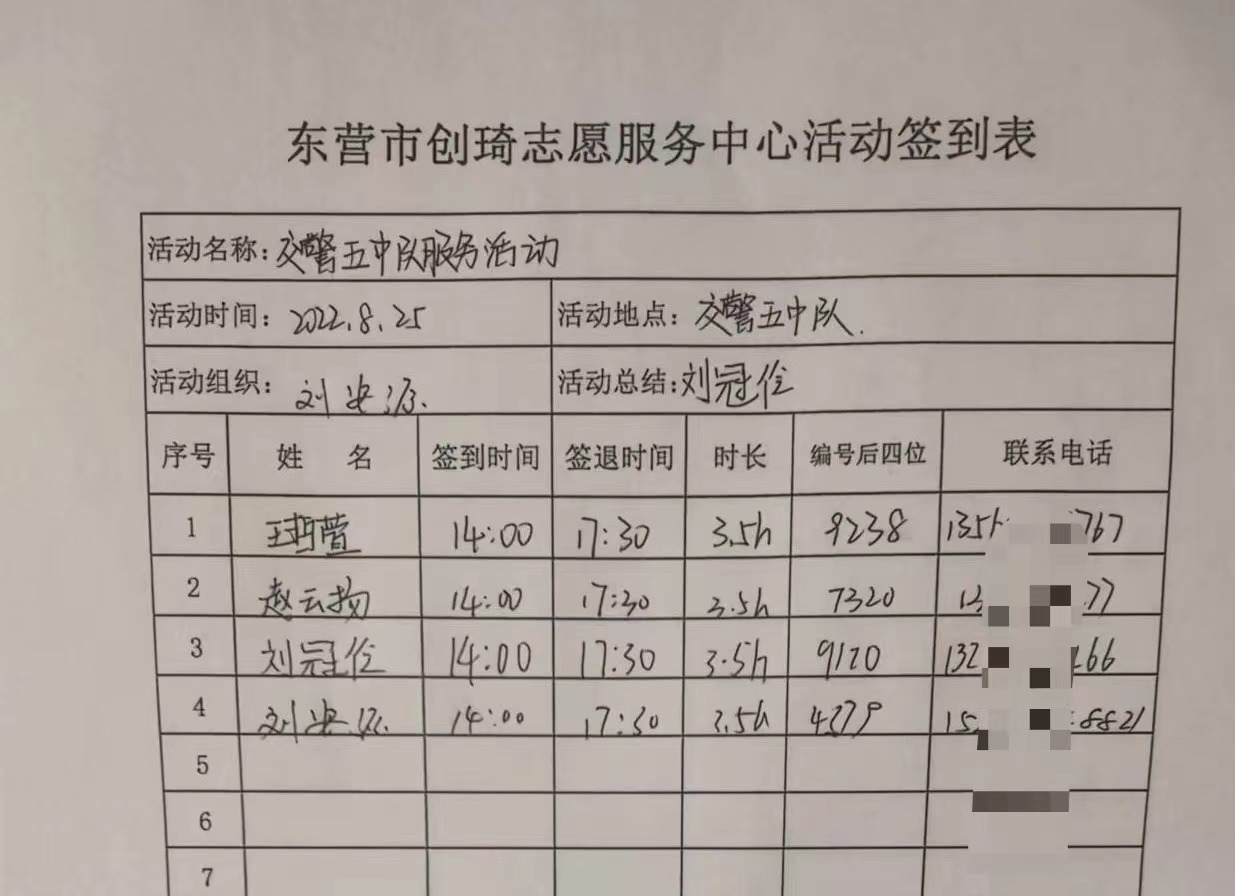 东营市创琦志愿服务中心活动签到表
活动名称：交警五中队服务活动
活动时间：2022.8.25 活动地点：交警五中队.
活动组织：刘安源. 活动总结：刘冠佺
序号 姓 名 签到时间 签退时间 时长 编号后四位 联系电话
1 王珺萱 14:00 17:30 3.5h 9238 135 767
2 赵云扬 14:00 17:30 3.5h 7320 77
3 刘冠佺 14:00 17:30 3.5h 9120 132 66
4 刘安源. 14:00 17:30 3.5h 4379 15 8821
5
6
7